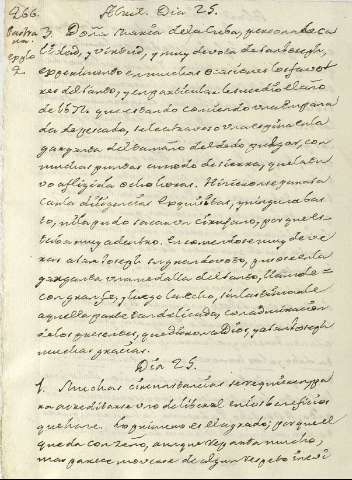 266. Abril. Dia 25.
3. Doña Maria de la Cueba, persona de ca
lidad, y virtud, y muy devota de San Joseph,
experimentò en muchas ocasiones los favo
res del Santo, y en particular le sucediò el año
de 1672. que estando comiendo una empana
da de pescada, se le atravesò una espina en la
garganta del tamaño del dedo pulgar, con
muchas puntas a modo de sierra, que la tu
vo afligida ocho horas. Hicieronse para sa
carla diligencias exquisitas, y ninguna bas
tò, ni la pudo sacar un cirujano, porque es
taba muy adentro. Encomendose muy de ve
ras a San Joseph su gran devoto, y puso en la
garganta una medalla del Santo, llamole
con gran fe, y luego la echò, sin lastimarle
aquella parte tan delicada, con admiracion
de los presentes, que dieron a Dios, y a San Joseph
muchas gracias.
Dia 25.
1. Muchas circunstancias se requieren pa
ra acreditarse uno de liberal en los beneficios
que hace. Lo primero es el agrado; porque el
que da con ceño, aunque reparta mucho,
mas parece moverse de algun respeto